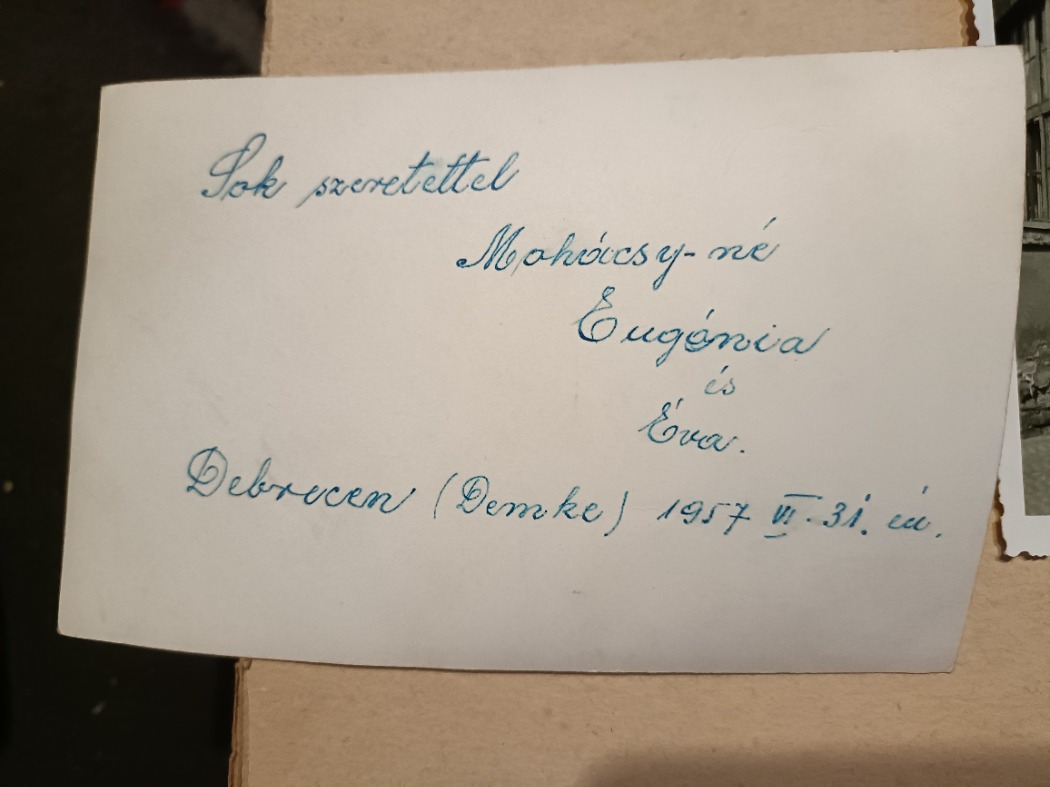 Sok szeretettel
Mohácsy-né
Eugénia
és
Éva.
Debrecen (Demke) 1957 VI. 31. én.